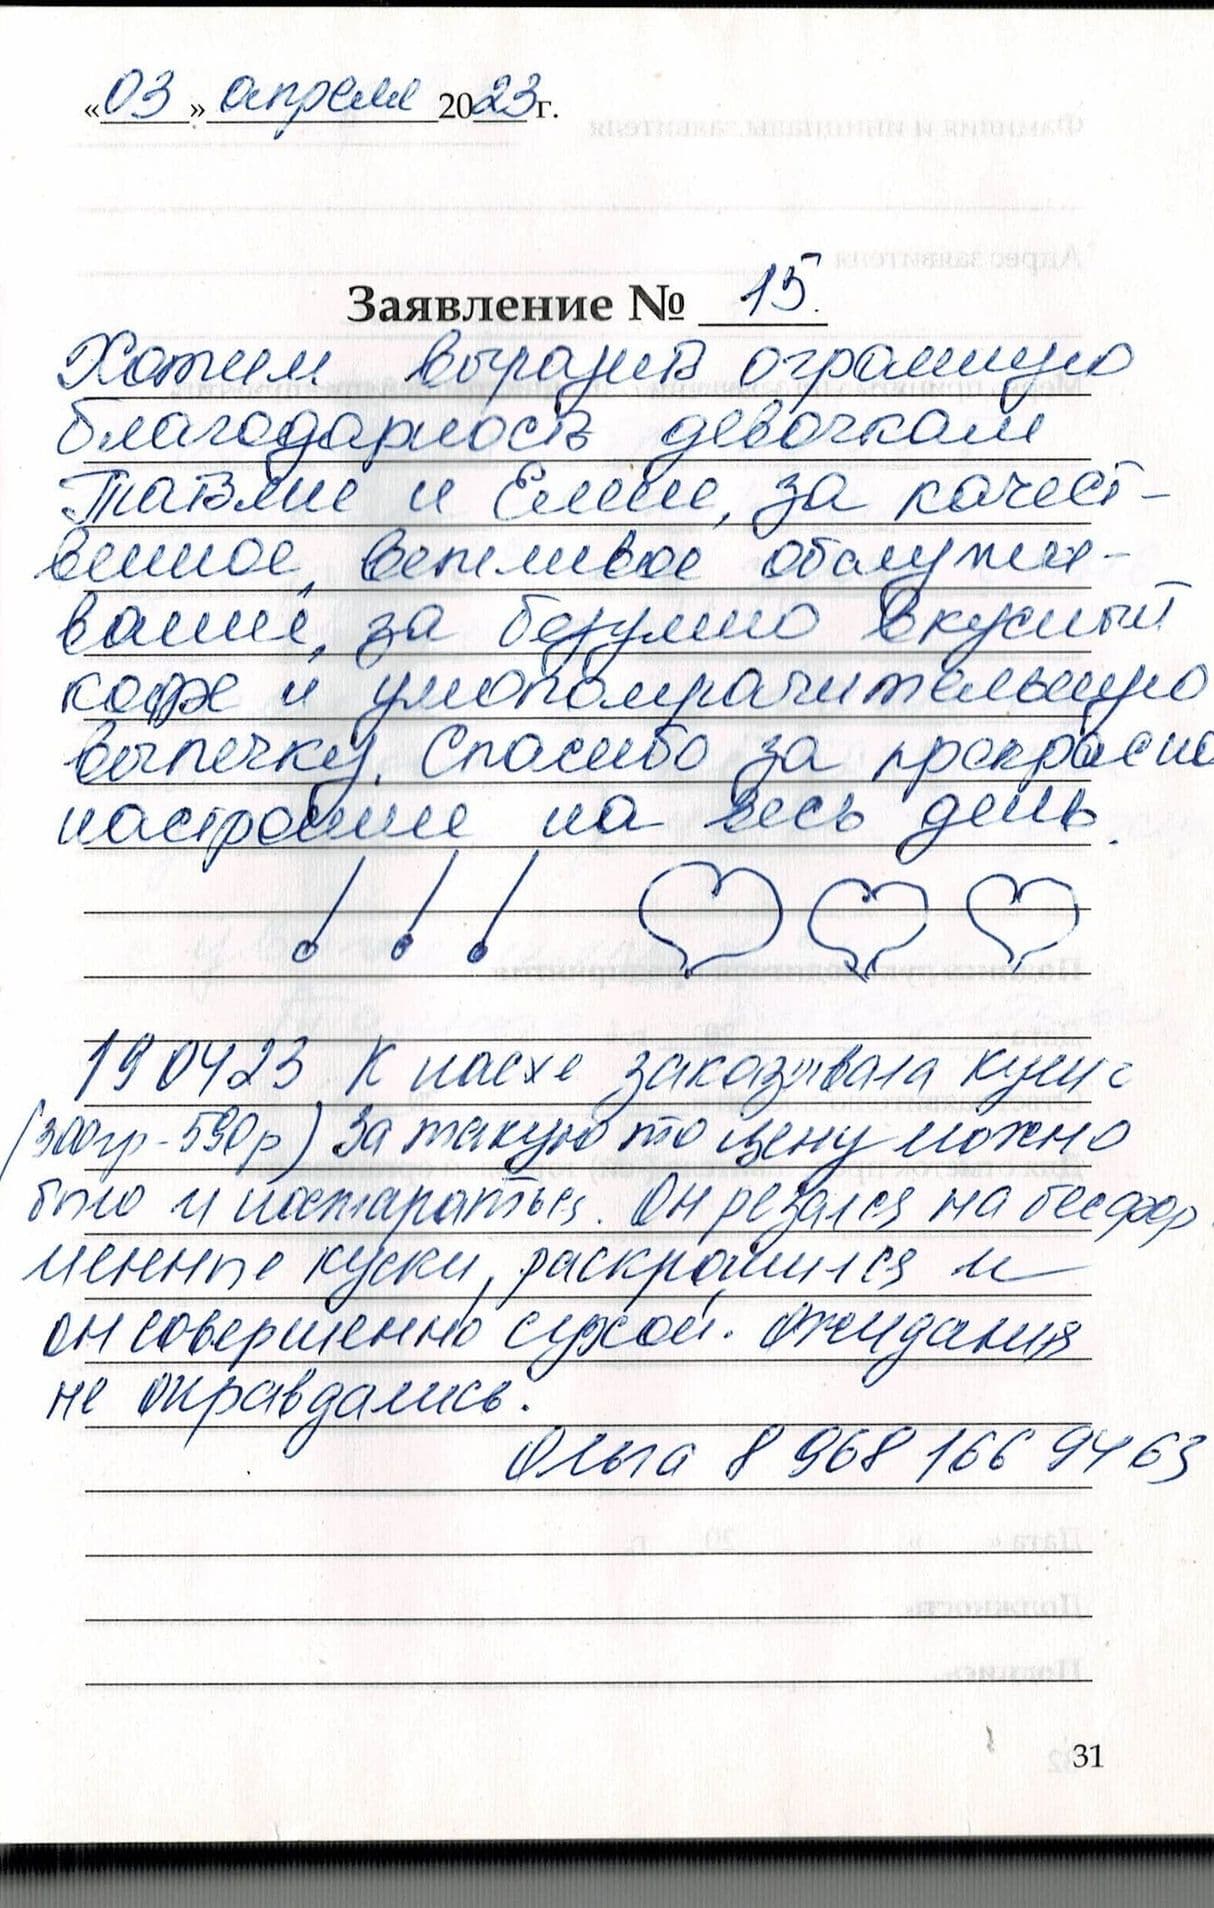 «03» апреля 2023 г.
Заявление № 15.
Хотим выразить огромную
благодарность девочкам
Татьяне и Елене, за качест-
венное, вежливое обслужи-
вание, за безумно вкусный
кофе и умопомрачительную
выпечку. Спасибо за прекрасно
настроение на весь день.
! ! ! ♡ ♡ ♡
19 04 23 К пасхе заказывала кулич
(300гр - 590р) За такую то цену можно
было и постараться. Он резался на бесфор
менные куски, раскрошился и
он совершенно сухой. Ожидания
не оправдались.
Ольга 8 968 166 94 63
31